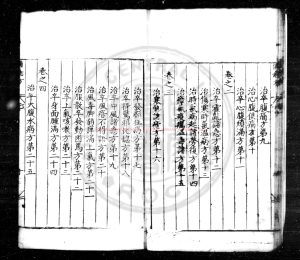 治卒腹痛方第九
治心腹俱痛方第十
治卒心腹煩滿方第十一
卷之二
治卒霍亂諸急方第十二
治傷寒時氣溫病方第十三
治時氣病起諸勞復方第十四
治瘴氣疫癘溫毒諸方第十五
卷之三
治寒熱諸瘧方第十六
治卒發癲狂病方第十七
治卒得驚邪恍惚方第十八
治中風諸急方第十九
治卒風瘖不得語方第二十
治風毒脚弱痺滿上氣方第二十一
治服散卒發動困篤方第二十二
治卒上氣咳嗽方第二十三
治卒身面腫滿方第二十四
卷之四
治卒大腹水病方第二十五